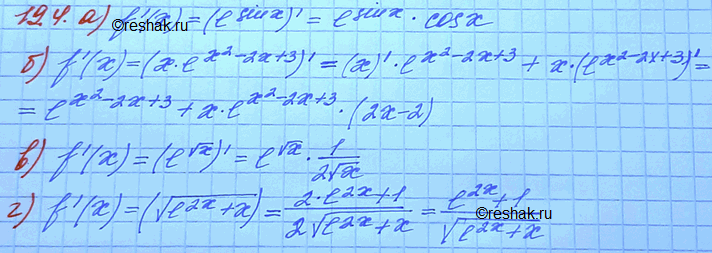 19.4. а) f'(x) = (e^{sin x})' = e^{sin x} · cos x
©reshak.ru
б) f'(x) = (x·e^{x²-2x+3})' = (x)'·e^{x²-2x+3} + x·(e^{x²-2x+3})' =
= e^{x²-2x+3} + x·e^{x²-2x+3}·(2x-2)
в) f'(x) = (e^{√x})' = e^{√x} · 1/(2√x)
г) f'(x) = (√(e^{2x}+x)) = (2·e^{2x}+1)/(2√(e^{2x}+x)) = (e^{2x}+1)/√(e^{2x}+x)
©reshak.ru